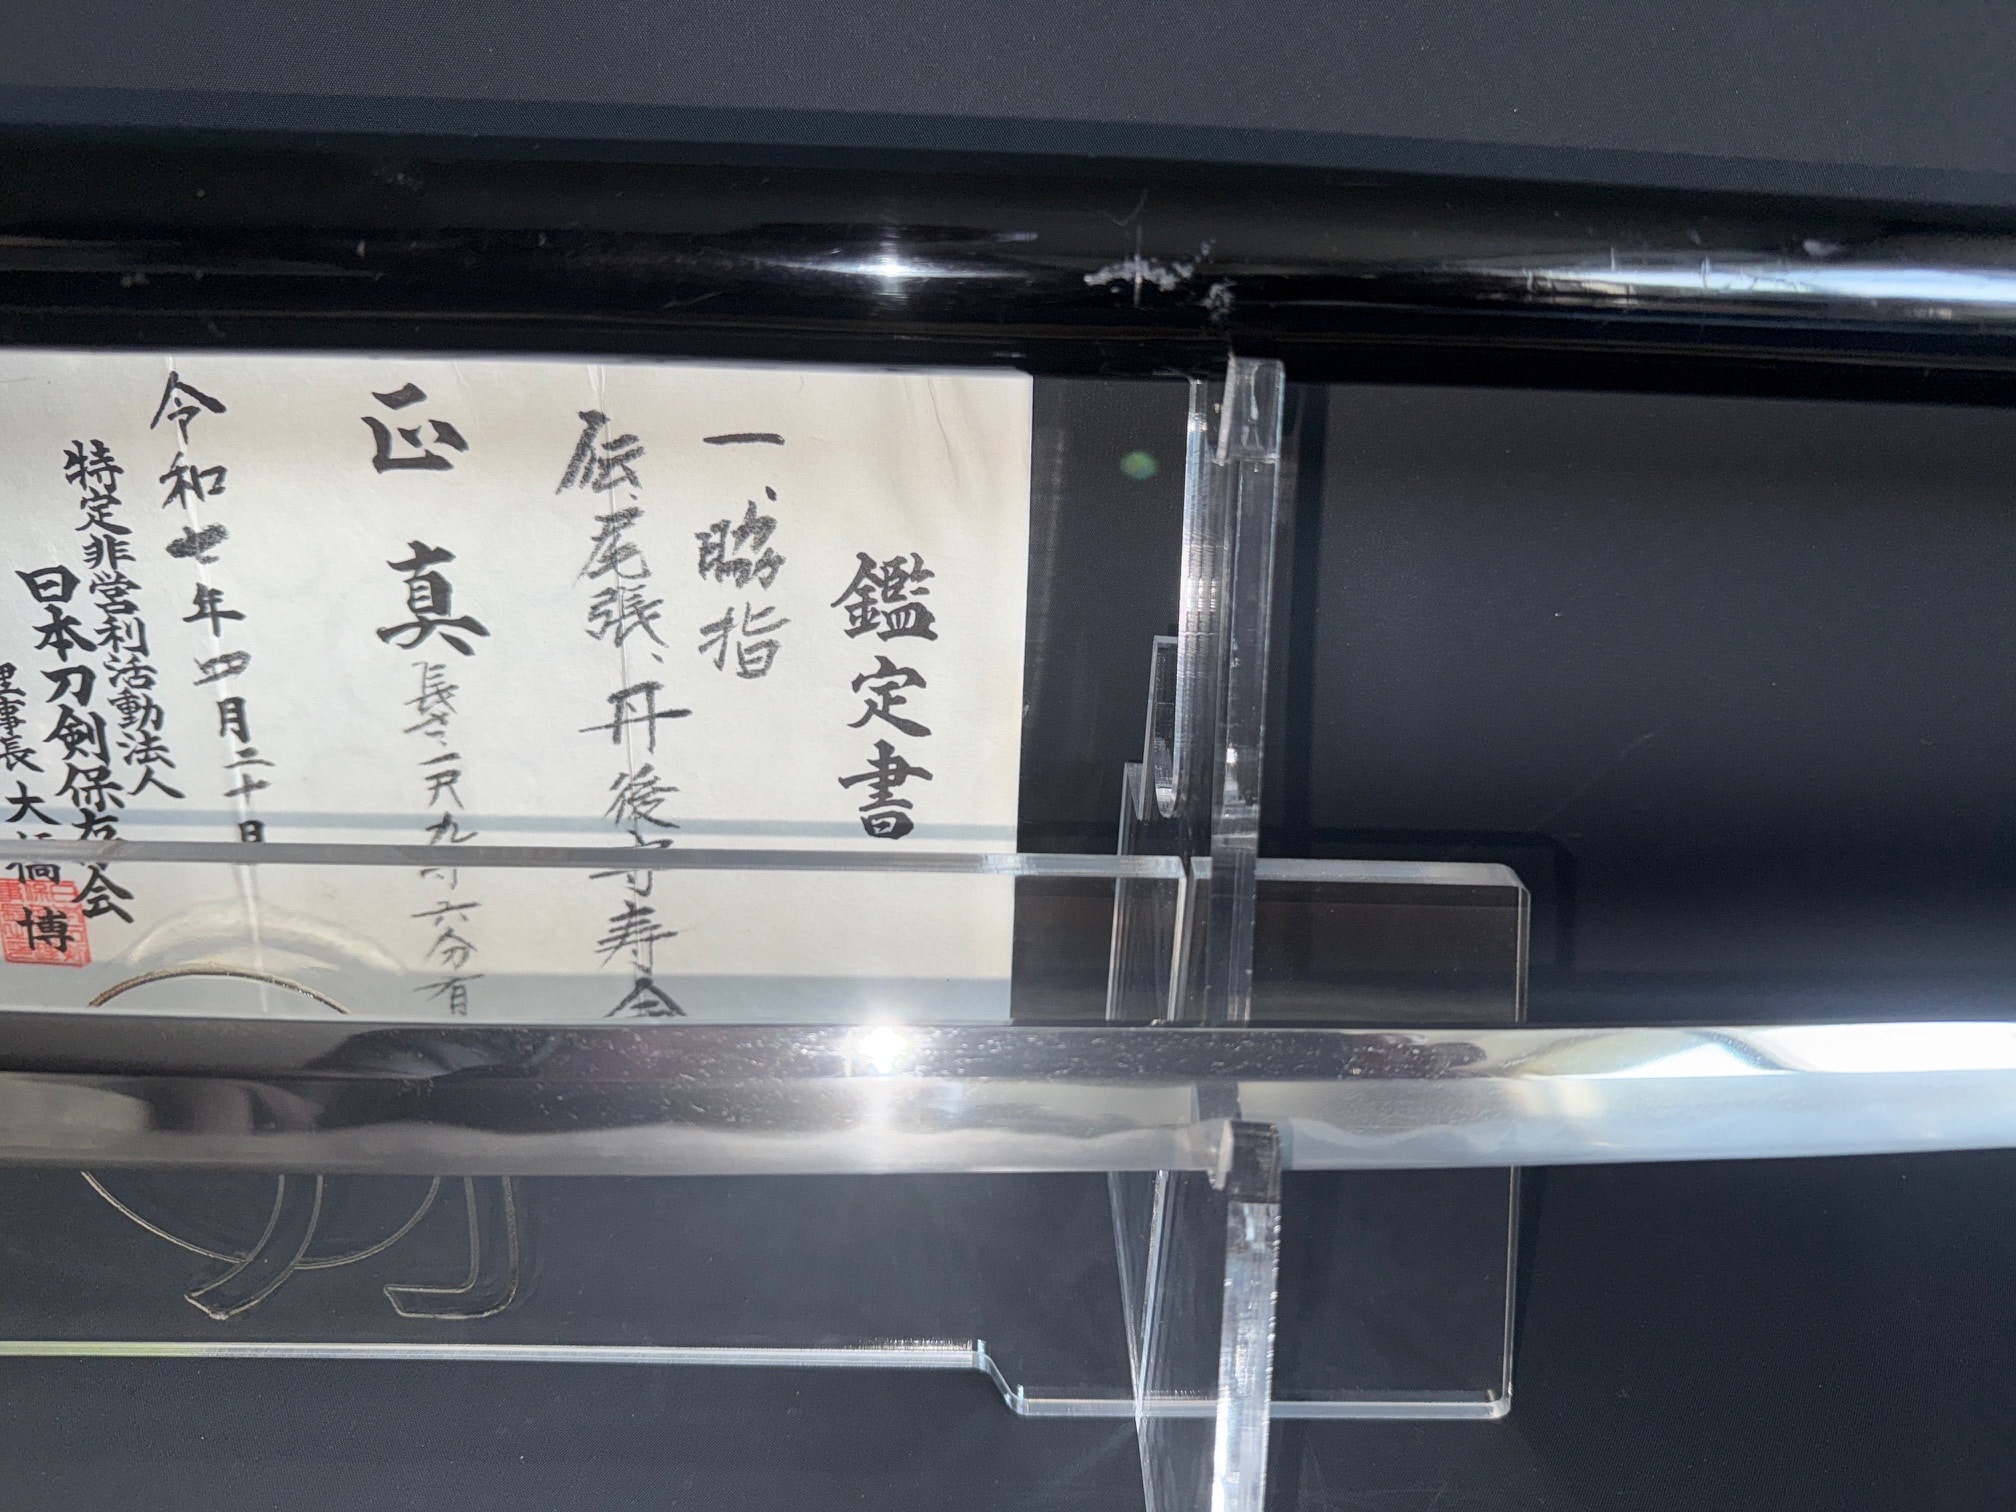 鑑定書
一、脇指
伝、尾張、丹後守寿命
正真
長さ、一尺九寸六分有
令和七年四月二十日
特定非営利活動法人
日本刀剣保存会
理事長 大 博